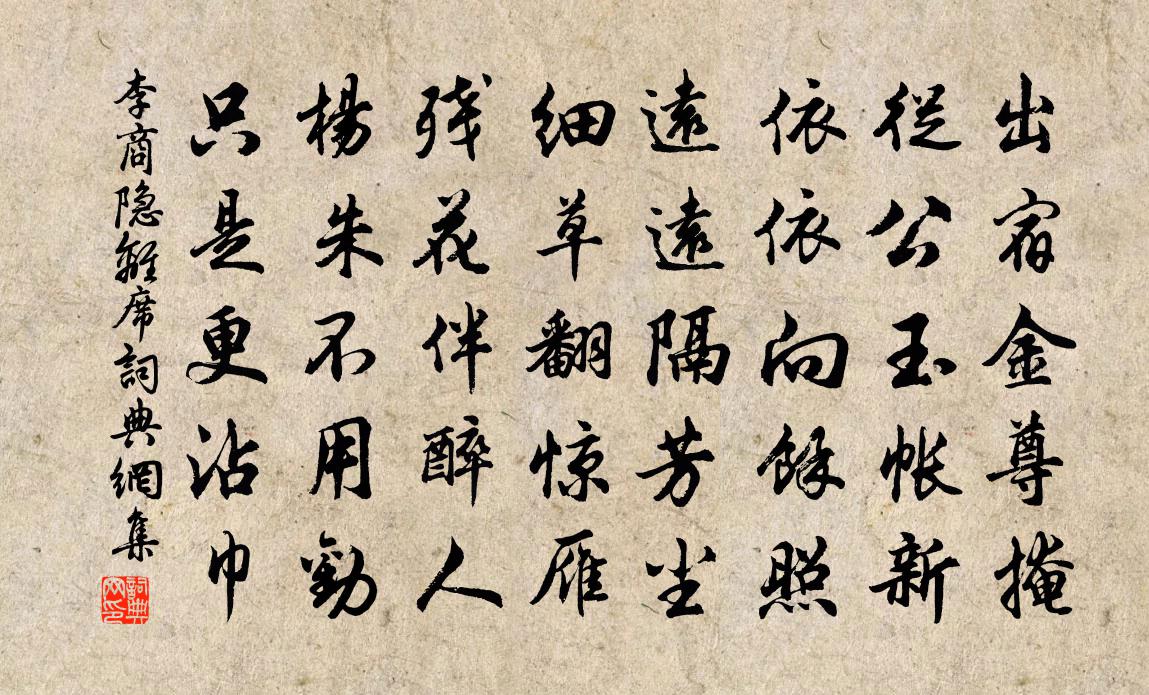 出宿金尊掩
從公玉帐新
依依向餘照
遠遠隔芳尘
细草翻惊雁
残花伴醉人
楊朱不用勸
只是更沾巾
李商隐離席詞典網集
詞典网印